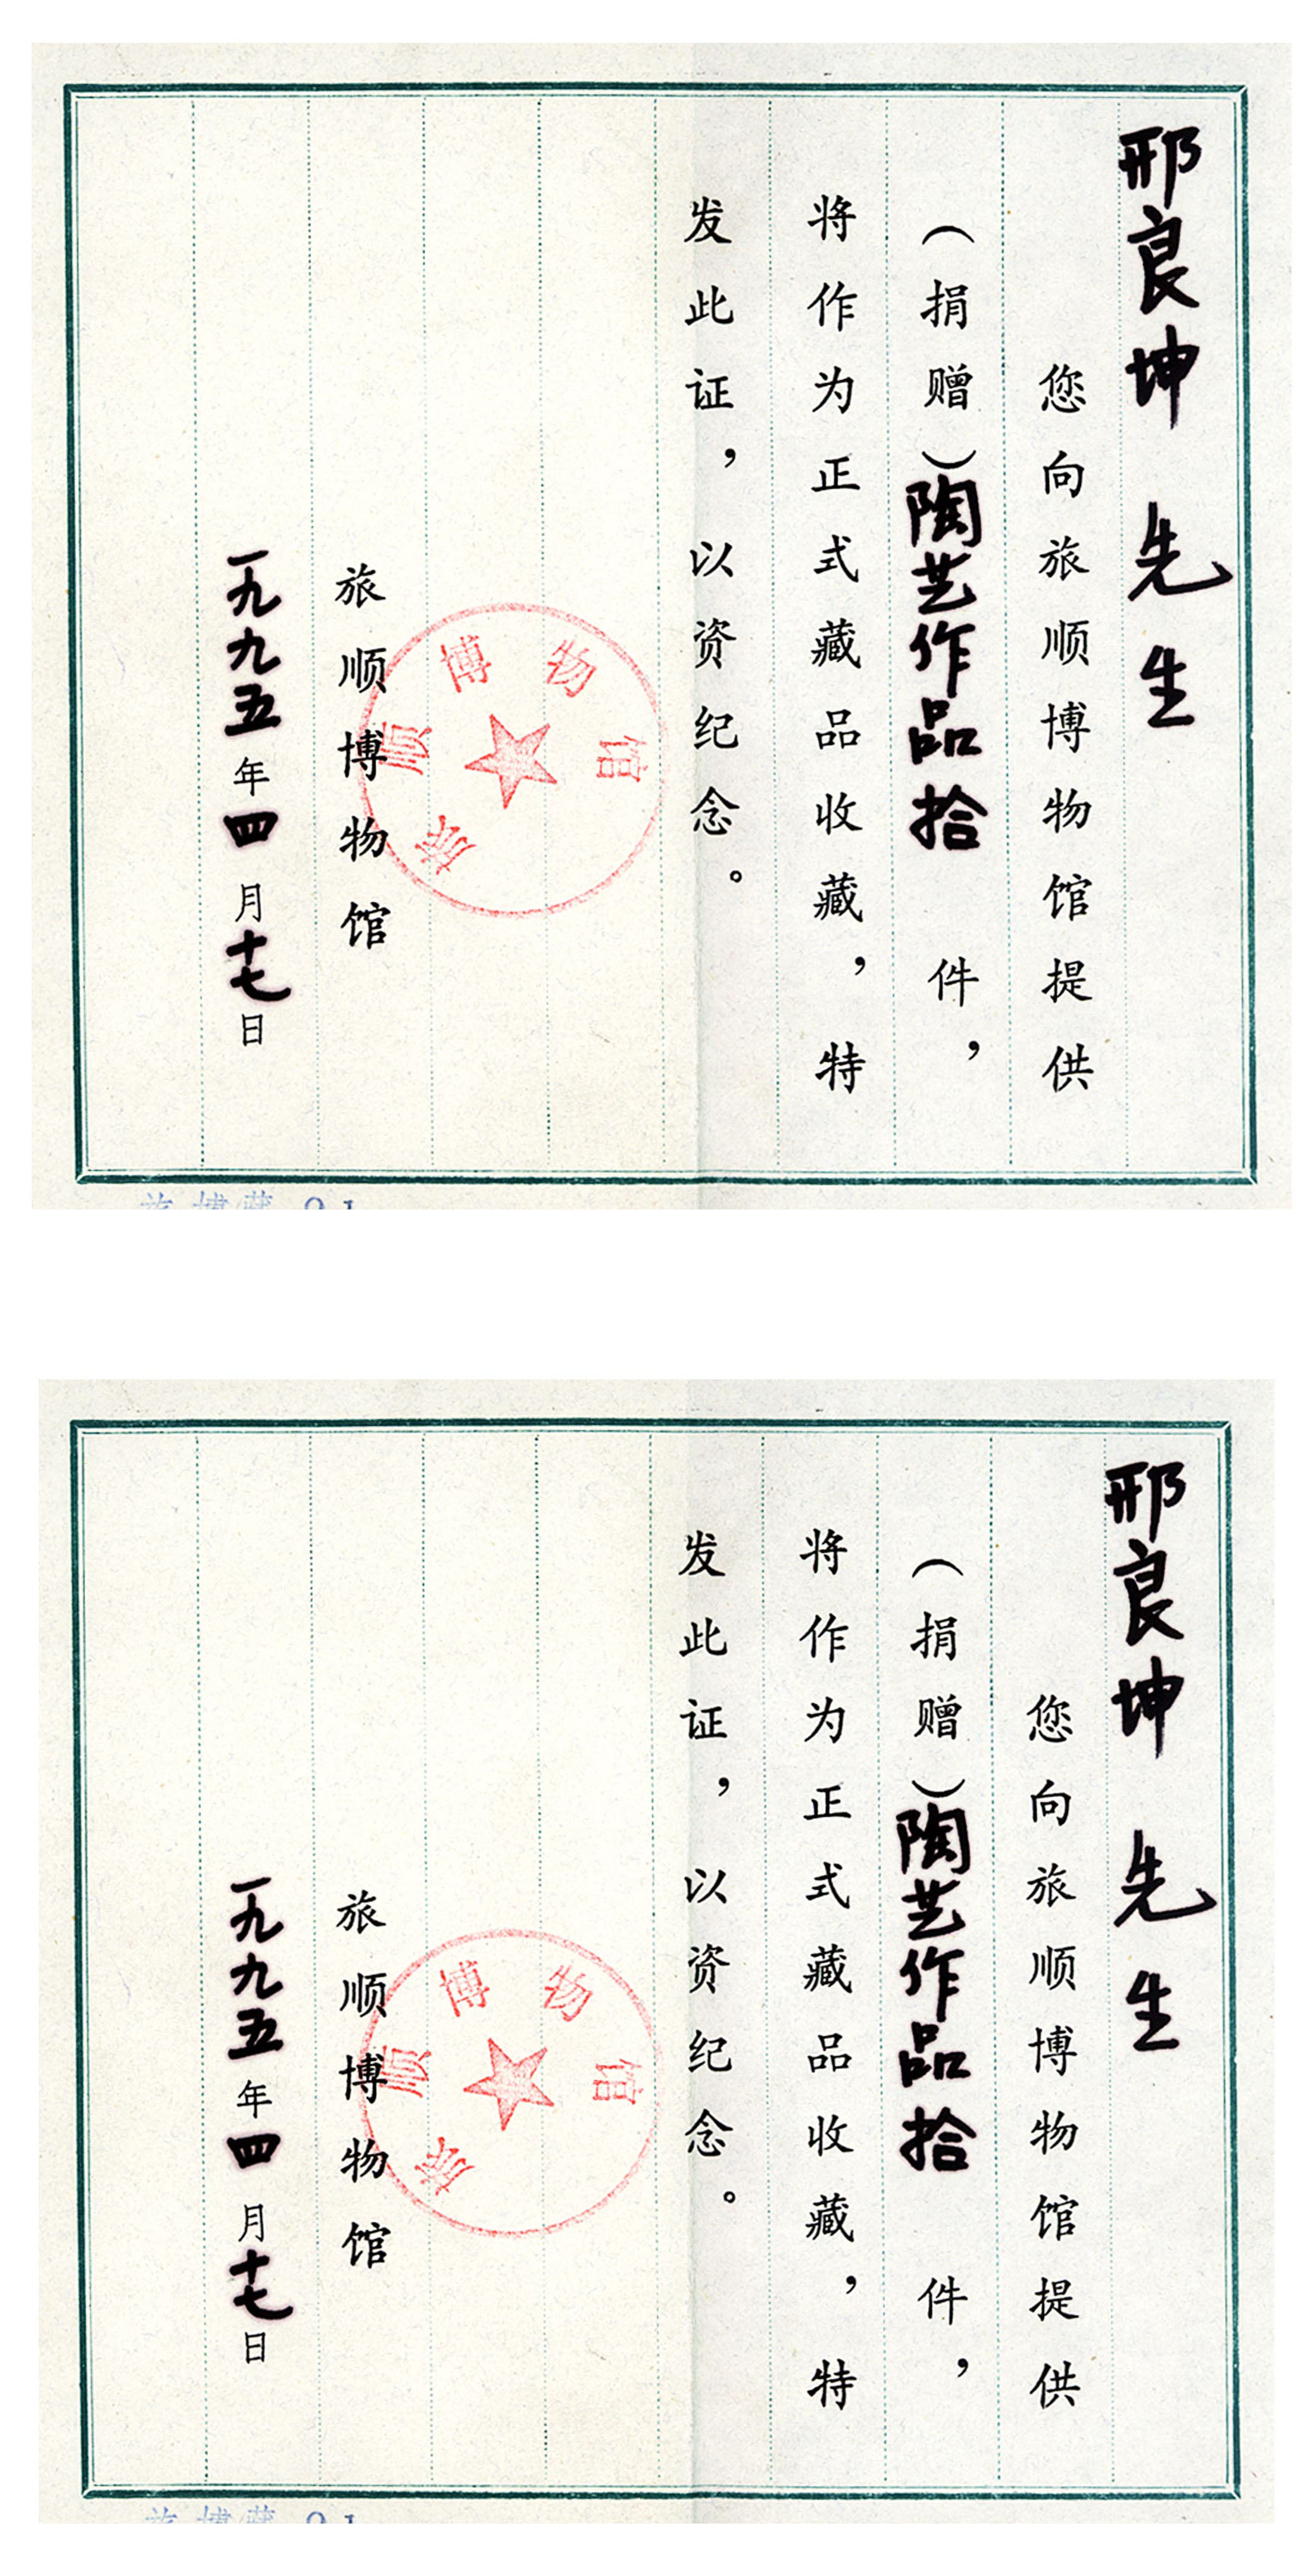 邢良坤 先生
您向旅顺博物馆提供
（捐赠）陶艺作品拾 件，
将作为正式藏品收藏，特
发此证，以资纪念。
旅顺博物馆
旅顺博物馆
一九九五年四月十七日
邢良坤 先生
您向旅顺博物馆提供
（捐赠）陶艺作品拾 件，
将作为正式藏品收藏，特
发此证，以资纪念。
旅顺博物馆
旅顺博物馆
一九九五年四月十七日